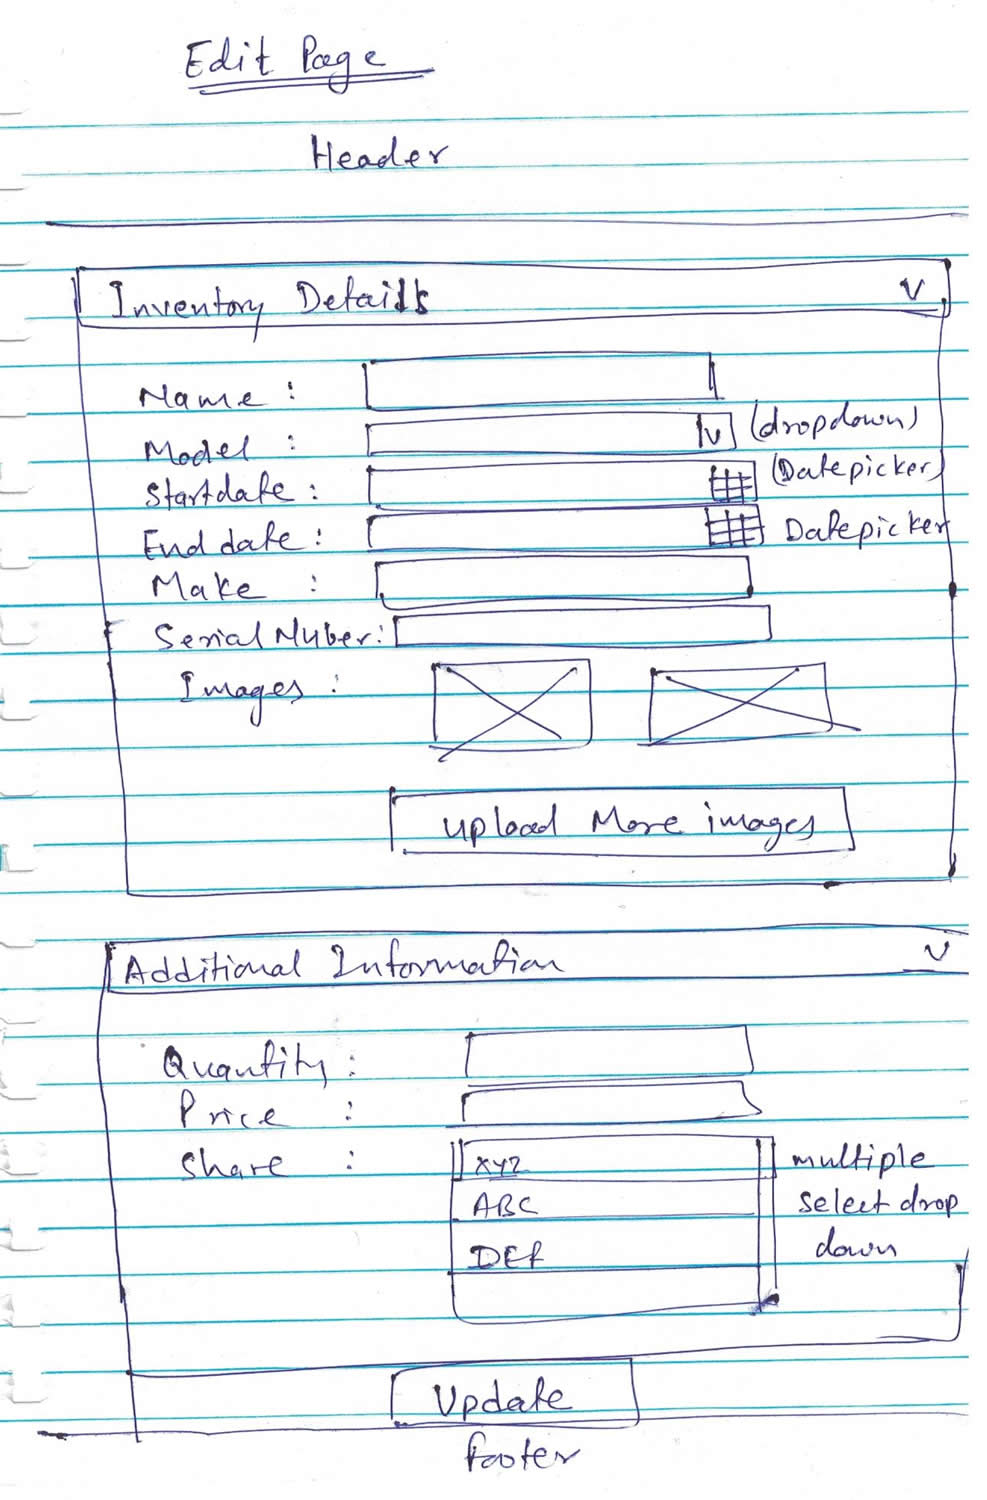 Edit Page
Header
Inventory Details
Name :
Model : (dropdown)
Startdate : (Datepicker)
End date : Datepicker
Make :
Serial Nuber:
Images :
upload More images
Additional Information
Quantity :
Price :
Share : XYZ multiple
ABC select drop
DEF down
Update
footer